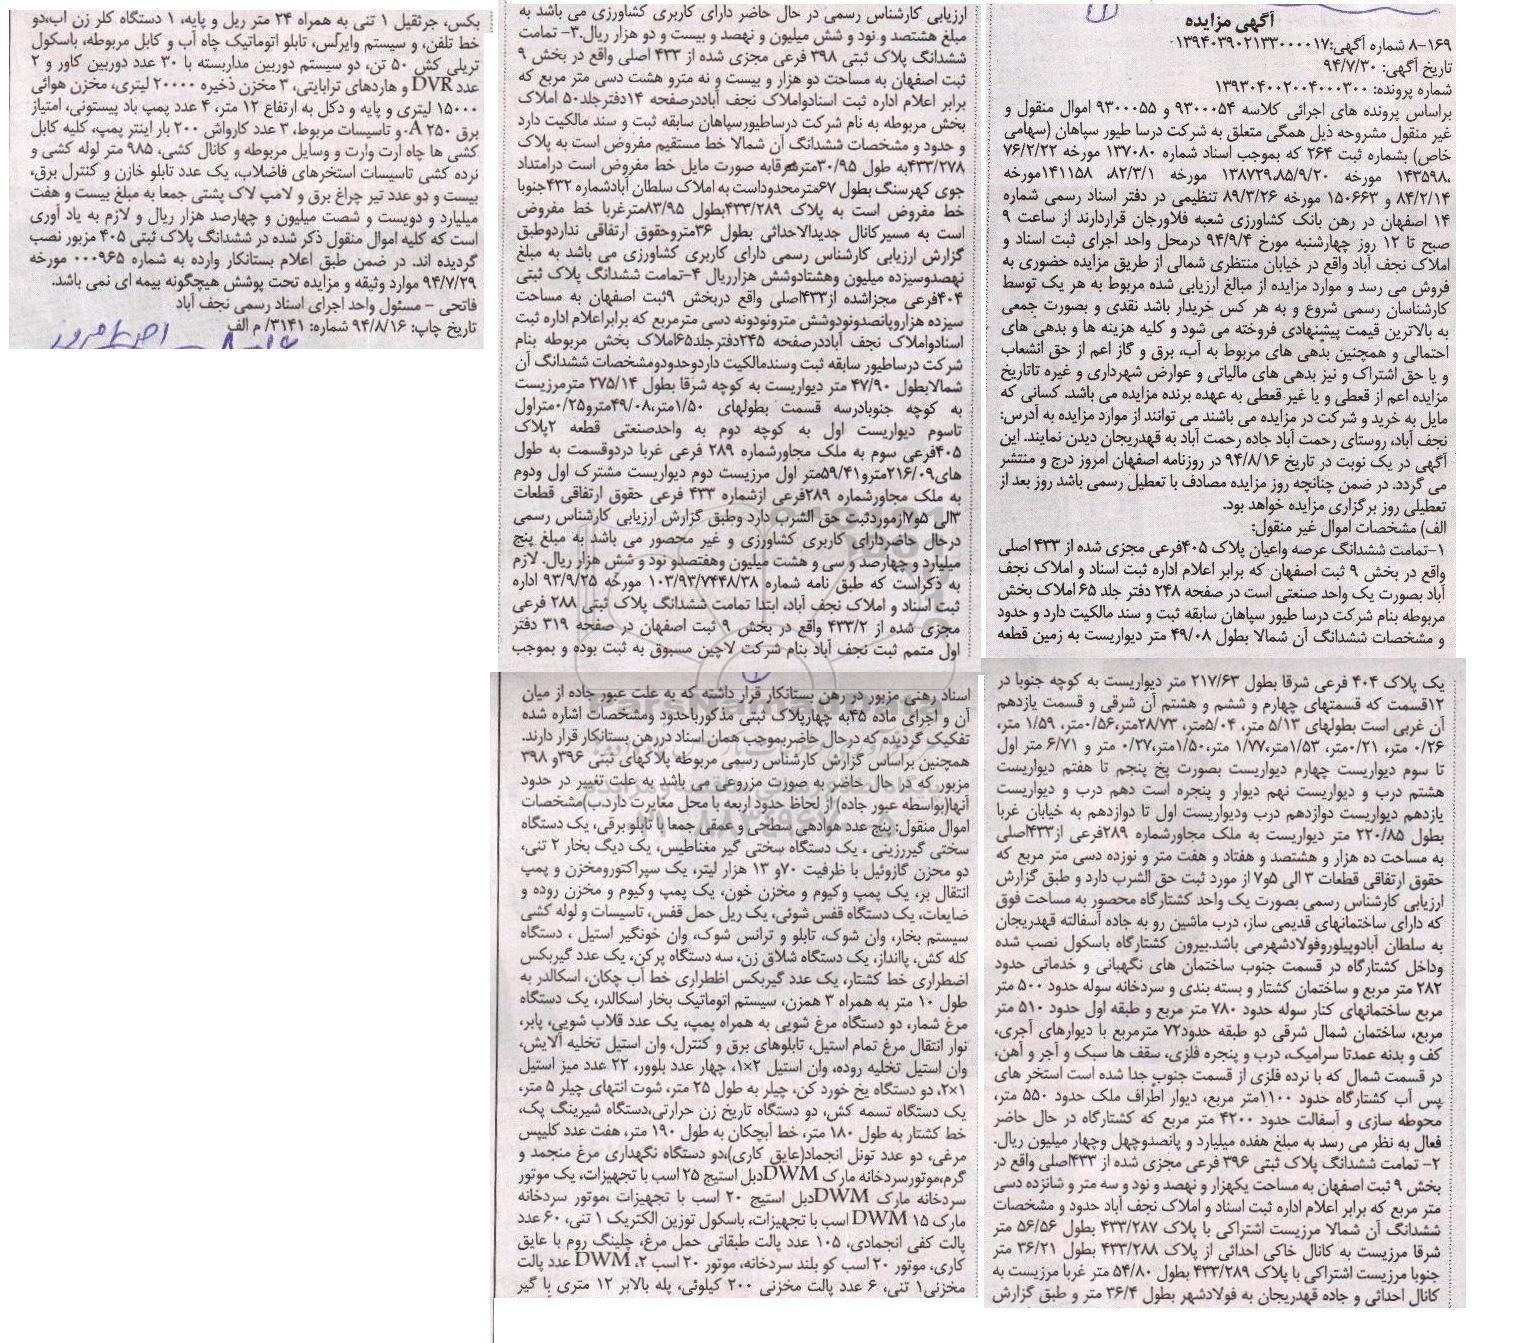 آگهی مزایده
۸-۱۶۹ شماره آگهی:۱۳۹۴۰۳۹۰۲۱۳۳۰۰۰۰۱۷
تاریخ آگهی: ۹۴/۷/۳۰
شماره پرونده: ۱۳۹۳۰۴۰۰۲۰۰۴۰۰۰۳۰۰
براساس پرونده های اجرائی کلاسه ۹۳۰۰۰۵۴ و ۹۳۰۰۰۵۵ اموال منقول و
غیر منقول مشروحه ذیل همگی متعلق به شرکت درسا طیور سپاهان (سهامی
خاص) بشماره ثبت ۲۶۴ که بموجب اسناد شماره ۱۳۷۰۸۰ مورخه ۷۶/۲/۲۲
،۱۴۳۵۹۸ مورخه ۱۳۸۷۲۹،۸۵/۹/۲۰ مورخه ۸۲/۳/۱، ۱۴۱۱۵۸مورخه
۸۴/۲/۱۴ و ۱۵۰۶۶۳ مورخه ۸۹/۳/۲۶ تنظیمی در دفتر اسناد رسمی شماره
۱۴ اصفهان در رهن بانک کشاورزی شعبه فلاورجان قراردارند از ساعت ۹
صبح تا ۱۲ روز چهارشنبه مورخ ۹۴/۹/۴ درمحل واحد اجرای ثبت اسناد و
املاک نجف آباد واقع در خیابان منتظری شمالی از طریق مزایده حضوری به
فروش می رسد و موارد مزایده از مبالغ ارزیابی شده مربوط به هر یک توسط
کارشناسان رسمی شروع و به هر کس خریدار باشد نقدی و بصورت جمعی
به بالاترین قیمت پیشنهادی فروخته می شود و کلیه هزینه ها و بدهی های
احتمالی و همچنین بدهی های مربوط به آب، برق و گاز اعم از حق انشعاب
و یا حق اشتراک و نیز بدهی های مالیاتی و عوارض شهرداری و غیره تاتاریخ
مزایده اعم از قطعی و یا غیر قطعی به عهده برنده مزایده می باشد. کسانی که
مایل به خرید و شرکت در مزایده می باشند می توانند از موارد مزایده به آدرس:
نجف آباد، روستای رحمت آباد جاده رحمت آباد به قهدریجان دیدن نمایند. این
آگهی در یک نوبت در تاریخ ۹۴/۸/۱۶ در روزنامه اصفهان امروز درج و منتشر
می گردد. در ضمن چنانچه روز مزایده مصادف با تعطیل رسمی باشد روز بعد از
تعطیلی روز برگزاری مزایده خواهد بود.
الف) مشخصات اموال غیر منقول:
۱-تمامت ششدانگ عرصه واعیان پلاک ۴۰۵فرعی مجزی شده از ۴۳۳ اصلی
واقع در بخش ۹ ثبت اصفهان که برابر اعلام اداره ثبت اسناد و املاک نجف
آباد بصورت یک واحد صنعتی است در صفحه ۲۴۸ دفتر جلد ۶۵ املاک بخش
مربوطه بنام شرکت درسا طیور سپاهان سابقه ثبت و سند مالکیت دارد و حدود
و مشخصات ششدانگ آن شمالا بطول ۴۹/۰۸ متر دیواریست به زمین قطعه
یک پلاک ۴۰۴ فرعی شرقا بطول ۲۱۷/۶۳ متر دیواریست به کوچه جنوبا در
۱۲قسمت که قسمتهای چهارم و ششم و هشتم آن شرقی و قسمت یازدهم
آن غربی است بطولهای ۵/۱۳ متر، ۵/۰۴متر، ۲۸/۷۳متر،۰/۵۶متر، ۱/۵۹ متر،
۰/۲۶ متر، ۰/۲۱متر، ۱/۵۳متر،۱/۷۷ متر،۱/۵۰متر،۰/۲۷ متر و ۶/۷۱ متر اول
تا سوم دیواریست چهارم دیواریست بصورت پخ پنجم تا هفتم دیواریست
هشتم درب و دیواریست نهم دیوار و پنجره است دهم درب و دیواریست
یازدهم دیواریست دوازدهم درب ودیواریست اول تا دوازدهم به خیابان غربا
بطول ۲۲۰/۸۵ متر دیواریست به ملک مجاورشماره ۲۸۹فرعی از۴۳۳اصلی
به مساحت ده هزار و هشتصد و هفتاد و هفت متر و نوزده دسی متر مربع که
حقوق ارتفاقی قطعات ۳ الی ۵و۷ از مورد ثبت حق الشرب دارد و طبق گزارش
ارزیابی کارشناس رسمی بصورت یک واحد کشتارگاه محصور به مساحت فوق
که دارای ساختمانهای قدیمی ساز، درب ماشین رو به جاده آسفالته قهدریجان
به سلطان آبادوپیلوروفولادشهرمی باشد.بیرون کشتارگاه باسکول نصب شده
وداخل کشتارگاه در قسمت جنوب ساختمان های نگهبانی و خدماتی حدود
۲۸۲ متر مربع و ساختمان کشتار و بسته بندی و سردخانه سوله حدود ۵۰۰ متر
مربع ساختمانهای کنار سوله حدود ۷۸۰ متر مربع و طبقه اول حدود ۵۱۰ متر
مربع، ساختمان شمال شرقی دو طبقه حدود۷۲ مترمربع با دیوارهای آجری،
کف و بدنه عمدتا سرامیک، درب و پنجره فلزی، سقف ها سبک و آجر و آهن،
در قسمت شمال که با نرده فلزی از قسمت جنوب جدا شده است استخر های
پس آب کشتارگاه حدود ۱۱۰۰متر مربع، دیوار اطراف ملک حدود ۵۵۰ متر،
محوطه سازی و آسفالت حدود ۴۲۰۰ متر مربع که کشتارگاه در حال حاضر
فعال به نظر می رسد به مبلغ هفده میلیارد و پانصدوچهل وچهار میلیون ریال.
۲- تمامت ششدانگ پلاک ثبتی ۳۹۶ فرعی مجزی شده از ۴۳۳اصلی واقع در
بخش ۹ ثبت اصفهان به مساحت یکهزار و نهصد و نود و سه متر و شانزده دسی
متر مربع که برابر اعلام اداره ثبت اسناد و املاک نجف آباد حدود و مشخصات
ششدانگ آن شمالا مرزیست اشتراکی با پلاک ۴۳۳/۲۸۷ بطول ۵۶/۵۶ متر
شرقا مرزیست به کانال خاکی احداثی از پلاک ۴۳۳/۲۸۸ بطول ۳۶/۲۱ متر
جنوبا مرزیست اشتراکی با پلاک ۴۳۳/۲۸۹ بطول ۵۴/۸۰ متر غربا مرزیست به
کانال احداثی و جاده قهدریجان به فولادشهر بطول ۳۶/۴ متر و طبق گزارش
ارزیابی کارشناس رسمی در حال حاضر دارای کاربری کشاورزی می باشد به
مبلغ هشتصد و نود و شش میلیون و نهصد و بیست و دو هزار ریال.۳- تمامت
ششدانگ پلاک ثبتی ۳۹۸ فرعی مجزی شده از ۴۳۳ اصلی واقع در بخش ۹
ثبت اصفهان به مساحت دو هزار و بیست و نه مترو هشت دسی متر مربع که
برابر اعلام اداره ثبت اسنادواملاک نجف آباددرصفحه ۱۴دفترجلد۵۰ املاک
بخش مربوطه به نام شرکت درساطیورسپاهان سابقه ثبت و سند مالکیت دارد
و حدود و مشخصات ششدانگ آن شمالا خط مستقیم مفروض است به پلاک
۴۳۳/۲۷۸به طول ۳۰/۹۵مترشرقابه صورت مایل خط مفروض است درامتداد
جوی کهرسنگ بطول ۶۷مترمحدوداست به املاک سلطان آبادشماره ۴۳۲جنوبا
خط مفروض است به پلاک ۴۳۳/۲۸۹بطول ۸۳/۹۵مترغربا خط مفروض
است به مسیرکانال جدیدالاحداثی بطول ۳۶متروحقوق ارتفاقی نداردوطبق
گزارش ارزیابی کارشناس رسمی دارای کاربری کشاورزی می باشد به مبلغ
نهصدوسیزده میلیون وهشتادوشش هزارریال ۴-تمامت ششدانگ پلاک ثبتی
۴۰۴فرعی مجزاشده از۴۳۳اصلی واقع دربخش ۹ثبت اصفهان به مساحت
سیزده هزاروپانصدونودوشش مترونودونه دسی مترمربع که برابراعلام اداره ثبت
اسنادواملاک نجف آباددرصفحه ۲۴۵دفترجلد۶۵املاک بخش مربوطه بنام
شرکت درساطیور سابقه ثبت وسندمالکیت داردوحدودومشخصات ششدانگ آن
شمالابطول ۴۷/۹۰ متر دیواریست به کوچه شرقا بطول ۲۷۵/۱۴ مترمرزیست
به کوچه جنوبادرسه قسمت بطولهای ۱/۵۰متر،۴۹/۰۸مترو۰/۲۵متراول
تاسوم دیواریست اول به کوچه دوم به واحدصنعتی قطعه ۲پلاک
۴۰۵فرعی سوم به ملک مجاورشماره ۲۸۹ فرعی غربا دردوقسمت به طول
های۲۱۶/۰۹مترو۵۹/۴۱متر اول مرزیست دوم دیواریست مشترک اول ودوم
به ملک مجاورشماره ۲۸۹فرعی ازشماره ۴۳۳ فرعی حقوق ارتفاقی قطعات
۳الی ۵و۷ازموردثبت حق الشرب دارد وطبق گزارش ارزیابی کارشناس رسمی
درحال حاضردارای کاربری کشاورزی و غیر محصور می باشد به مبلغ پنج
میلیارد و چهارصد و سی و هشت میلیون وهفتصدو نود و شش هزار ریال. لازم
به ذکراست که طبق نامه شماره ۱۰۳/۹۳/۷۴۴۸/۳۸ مورخه ۹۳/۹/۲۵ اداره
ثبت اسناد و املاک نجف آباد، ابتدا تمامت ششدانگ پلاک ثبتی ۲۸۸ فرعی
مجزی شده از ۴۳۳/۲ واقع در بخش ۹ ثبت اصفهان در صفحه ۳۱۹ دفتر
اول متمم ثبت نجف آباد بنام شرکت لاچین مسبوق به ثبت بوده و بموجب
اسناد رهنی مزبور در رهن بستانکار قرار داشته که به علت عبور جاده از میان
آن و اجرای ماده ۴۵به چهارپلاک ثبتی مذکورباحدود ومشخصات اشاره شده
تفکیک گردیده که درحال حاضربموجب همان اسناد دررهن بستانکار قرار دارند.
همچنین براساس گزارش کارشناس رسمی مربوطه پلاکهای ثبتی ۳۹۶و ۳۹۸
مزبور که در حال حاضر به صورت مزروعی می باشد به علت تغییر در حدود
آنها(بواسطه عبور جاده) از لحاظ حدود اربعه با محل مغایرت دارد.ب)مشخصات
اموال منقول: پنج عدد هوادهی سطحی و عمقی جمعا با تابلو برقی، یک دستگاه
سختی گیررزینی ، یک دستگاه سختی گیر مغناطیس، یک دیگ بخار ۲ تنی،
دو مخزن گازوئیل با ظرفیت ۷۰و ۱۳ هزار لیتر، یک سپراکتورومخزن و پمپ
انتقال بر، یک پمپ وکیوم و مخزن خون، یک پمپ وکیوم و مخزن روده و
ضایعات، یک دستگاه قفس شوئی، یک ریل حمل قفس، تاسیسات و لوله کشی
سیستم بخار، وان شوک، تابلو و ترانس شوک، وان خونگیر استیل ، دستگاه
کله کش، پاانداز، یک دستگاه شلاق زن، سه دستگاه پرکن، یک عدد گیربکس
اضطراری خط کشتار، یک عدد گیربکس اظطراری خط آب چکان، اسکالدر به
طول ۱۰ متر به همراه ۳ همزن، سیستم اتوماتیک بخار اسکالدر، یک دستگاه
مرغ شمار، دو دستگاه مرغ شویی به همراه پمپ، یک عدد قلاب شویی، پابر،
نوار انتقال مرغ تمام استیل، تابلوهای برق و کنترل، وان استیل تخلیه آلایش،
وان استیل تخلیه روده، وان استیل ۲×۱، چهار عدد بلوور، ۲۲ عدد میز استیل
۱×۲، دو دستگاه یخ خورد کن، چیلر به طول ۲۵ متر، شوت انتهای چیلر ۵ متر،
یک دستگاه تسمه کش، دو دستگاه تاریخ زن حرارتی،دستگاه شیرینگ پک،
خط کشتار به طول ۱۸۰ متر، خط آبچکان به طول ۱۹۰ متر، هفت عدد کلیپس
مرغی، دو عدد تونل انجماد(عایق کاری)،دو دستگاه نگهداری مرغ منجمد و
گرم،موتورسردخانه مارک DWMدبل استیج ۲۵ اسب با تجهیزات، یک موتور
سردخانه مارک DWMدبل استیج ۲۰ اسب با تجهیزات ،موتور سردخانه
مارک DWM ۱۵ اسب با تجهیزات، باسکول توزین الکتریک ۱ تنی، ۶۰ عدد
پالت کفی انجمادی، ۱۰۵ عدد پالت طبقاتی حمل مرغ، چلینگ روم با عایق
کاری، موتور ۲۰ اسب کو بلند سردخانه، موتور ۲۰ اسب DWM ،۲ عدد پالت
مخزنی۱ تنی، ۶ عدد پالت مخزنی ۲۰۰ کیلوئی، پله بالابر ۱۲ متری با گیر
بکس، جرثقیل ۱ تنی به همراه ۲۴ متر ریل و پایه، ۱ دستگاه کلر زن آب،دو
خط تلفن، و سیستم وایرلس، تابلو اتوماتیک چاه آب و کابل مربوطه، باسکول
تریلی کش ۵۰ تن، دو سیستم دوربین مداربسته با ۳۰ عدد دوربین کاور و ۲
عدد DVR و هاردهای ترابایتی، ۳ مخزن ذخیره ۲۰۰۰۰ لیتری، مخزن هوائی
۱۵۰۰۰ لیتری و پایه و دکل به ارتفاع ۱۲ متر، ۴ عدد پمپ باد پیستونی، امتیاز
برق ۲۵۰ A، و تاسیسات مربوط، ۳ عدد کارواش ۲۰۰ بار اینتر پمپ، کلیه کابل
کشی ها چاه ارت وارت و وسایل مربوطه و کانال کشی، ۹۸۵ متر لوله کشی و
نرده کشی تاسیسات استخرهای فاضلاب، یک عدد تابلو خازن و کنترل برق،
بیست و دو عدد تیر چراغ برق و لامپ لاک پشتی جمعا به مبلغ بیست و هفت
میلیارد و دویست و شصت میلیون و چهارصد هزار ریال و لازم به یاد آوری
است که کلیه اموال منقول ذکر شده در ششدانگ پلاک ثبتی ۴۰۵ مزبور نصب
گردیده اند. در ضمن طبق اعلام بستانکار وارده به شماره ۰۰۰۹۶۵ مورخه
۹۴/۷/۲۹ موارد وثیقه و مزایده تحت پوشش هیچگونه بیمه ای نمی باشد.
فاتحی - مسئول واحد اجرای اسناد رسمی نجف آباد
تاریخ چاپ: ۹۴/۸/۱۶ شماره: ۳۱۴۱/ م الف
ParsNamadData